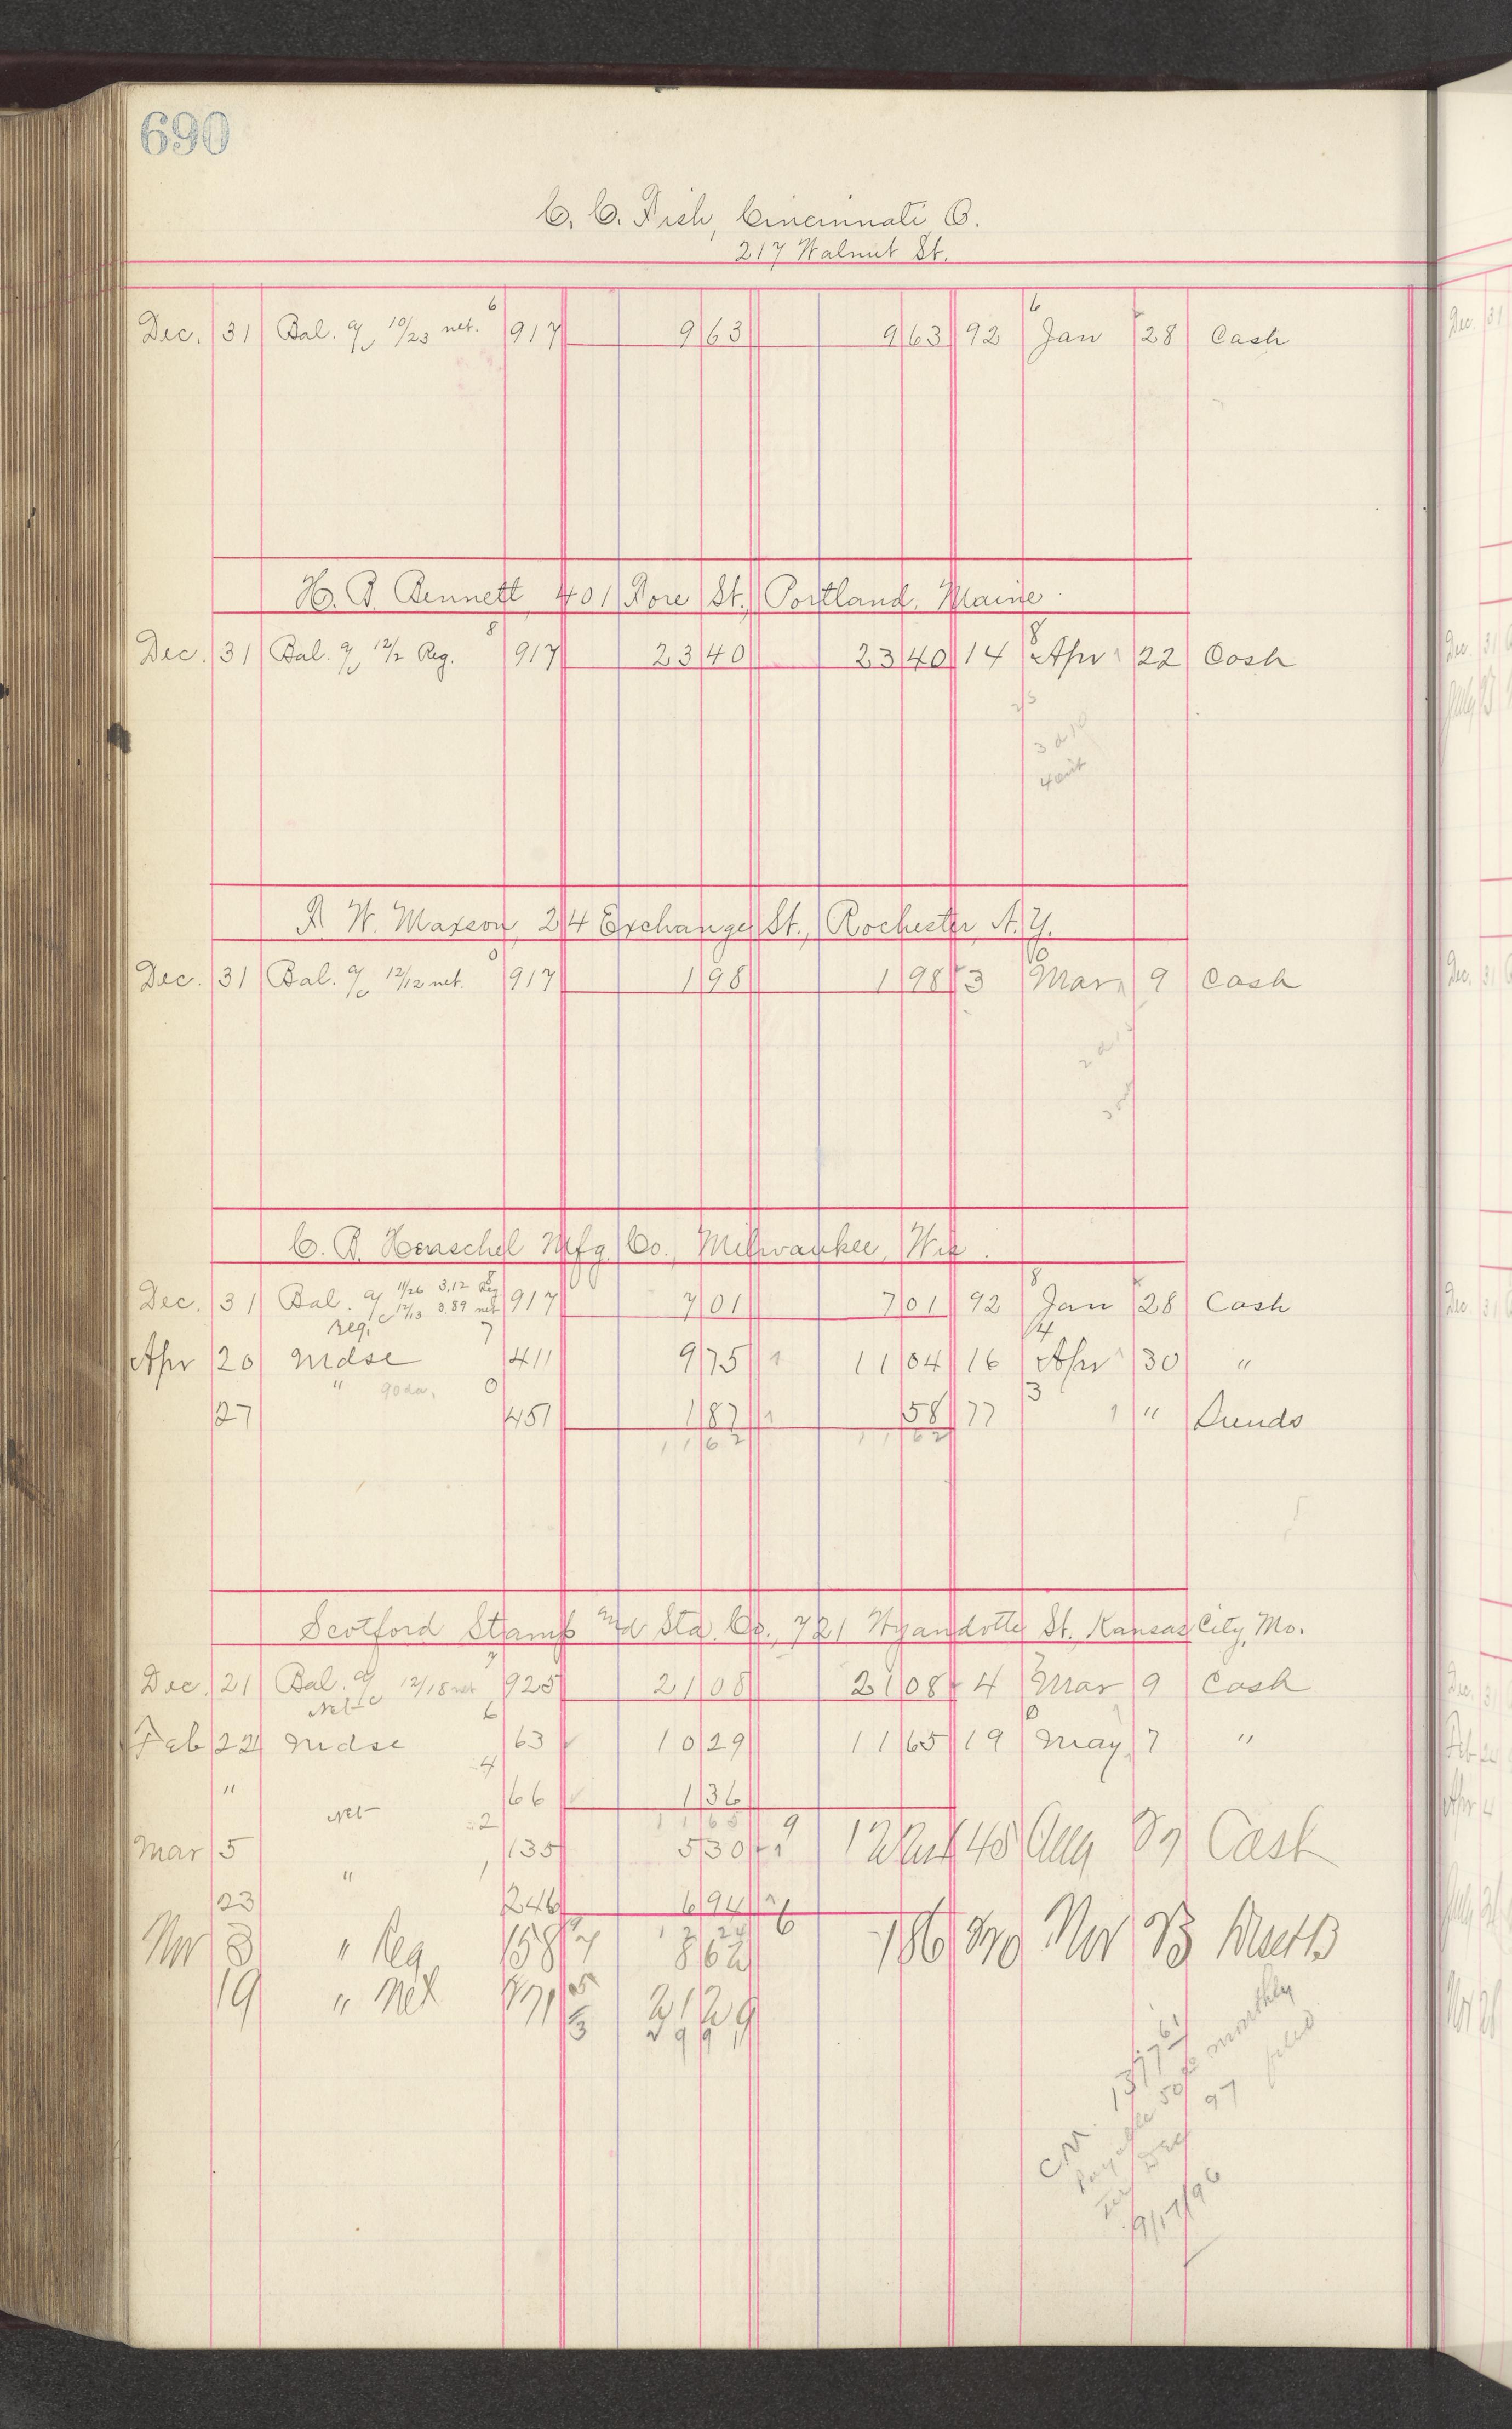 690
C. C. Fish, Cincinnati O.
217 Walnut St.
6 6
Dec. 31 Bal. a/c 10/23 net. 917 9 63 9 63 92 Jan 28 Cash
H. B. Bennett, 401 Fore St., Portland, Maine
8 8
Dec. 31 Bal. a/c 12/2 Reg. 917 23 40 23 40 14 Apr 22 Cash
W. Maxson, 24 Exchange St., Rochester, N.Y.
0 0
Dec. 31 Bal. a/c 12/12 net. 917 1 98 1 98 3 Mar 9 Cash
Mfg. Co., Milwaukee, Wis.
11/26 3.12 Reg 8
Dec. 31 Bal. a/c 12/13 3.89 net 917 7 01 7 01 92 Jan 28 Cash
Reg. 7 4
Apr 20 Mdse 411 9 75 11 04 16 Apr 30 "
" 90 da. 0 3
27 451 1 87 58 77 " Sunds
11 62 11 62
Scotford Stamp and Sta. Co., 721 Wyandotte St., Kansas City, Mo.
7 7
Dec. 21 Bal. a/c 12/18 net 925 21 08 21 08 4 Mar 9 Cash
Net 6 0
Feb 22 Mdse 63 10 29 11 65 19 May 7 "
4
" 66 1 36
Net 2 11 65 9
Mar 5 135 5 30 12 24 40 Aug 27 Cash
" 1
23 246 6 94 6
12 24
Nov 3 " Reg 158 8 62 186 Nov 23
19 " Net 21 29
29 91
C.M. 1377 61
Payable 50 monthly
Dec 97
9/17/96